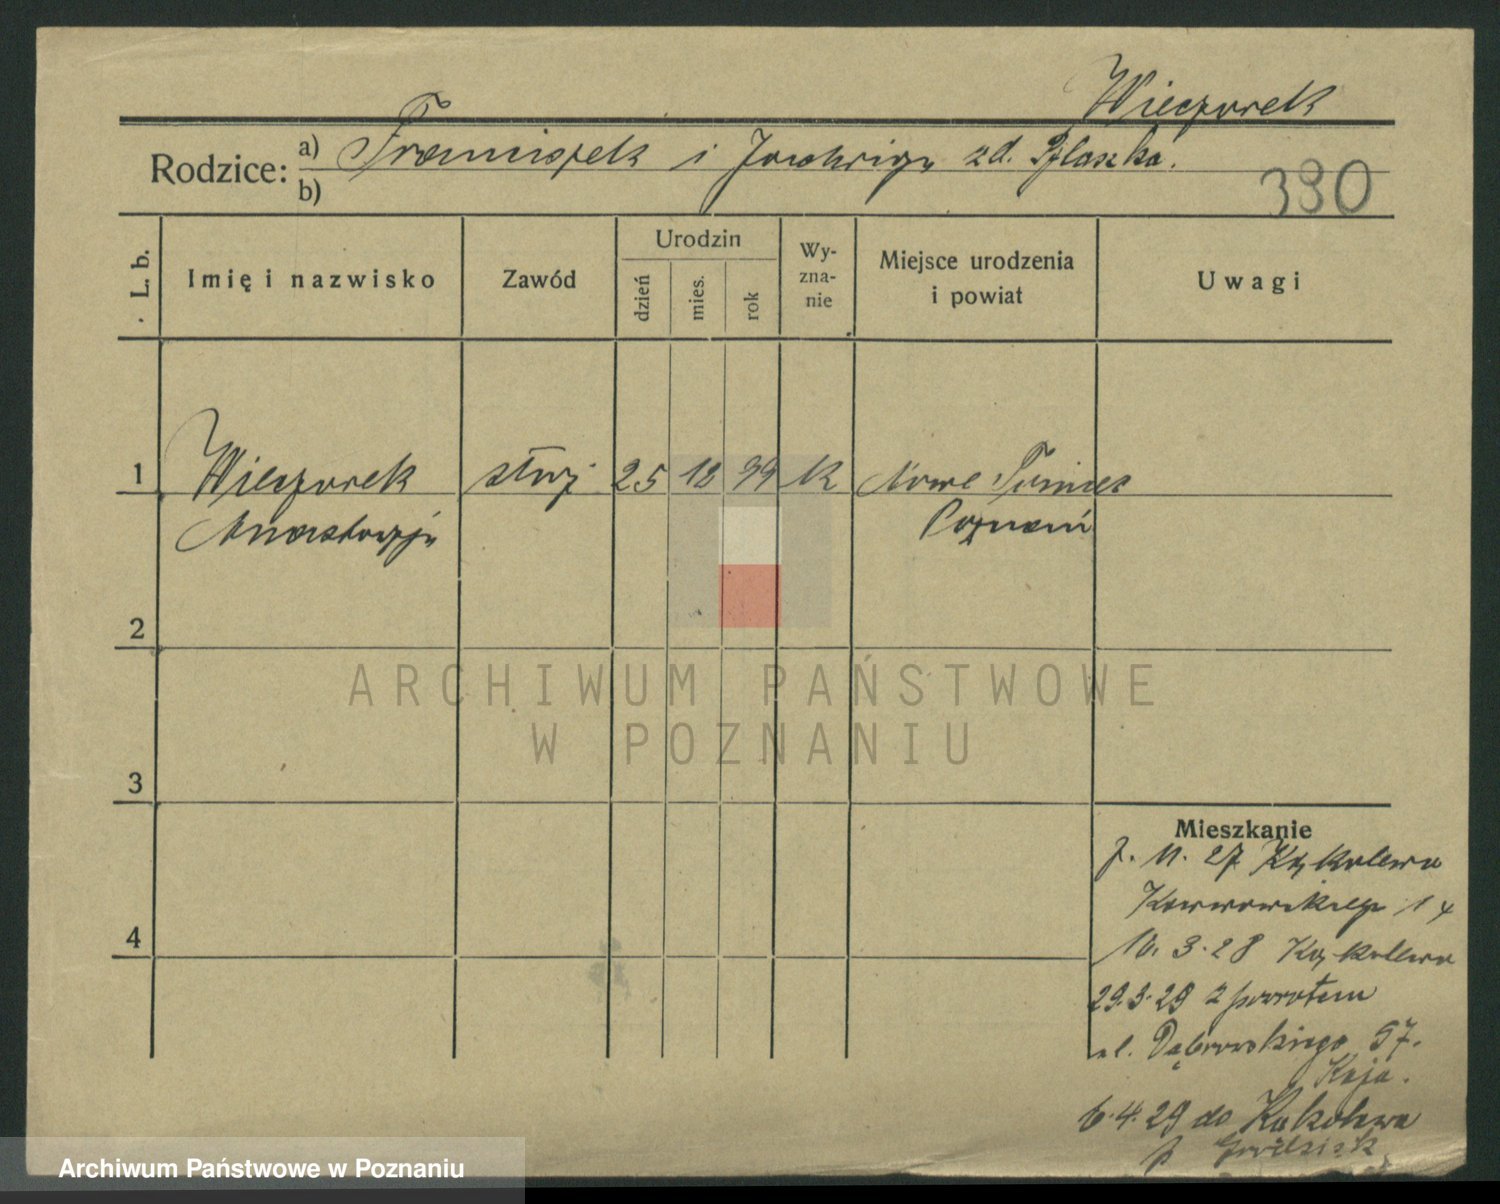 Wieczorek
Rodzice: a) Franciszek i Jadwiga zd. Płaszka.
b)
390
L. b.
Imię i nazwisko
Zawód
Urodzin
dzień
mies.
rok
Wy-
zna-
nie
Miejsce urodzenia
i powiat
Uwagi
1 Wieczorek służ 25 12 99 k Nowe
Anastazja Poznań
2
ARCHIWUM PAŃSTWOWE
W POZNANIU
3
Mieszkanie
11. 27 Kąkolewo
4
10. 3. 28 Kąkolewo
29.3.29 z powrotem
ul. Dąbrowskiego 57.
6.4.29 do Kąkolewa
p Grodzisk
Archiwum Państwowe w Poznaniu